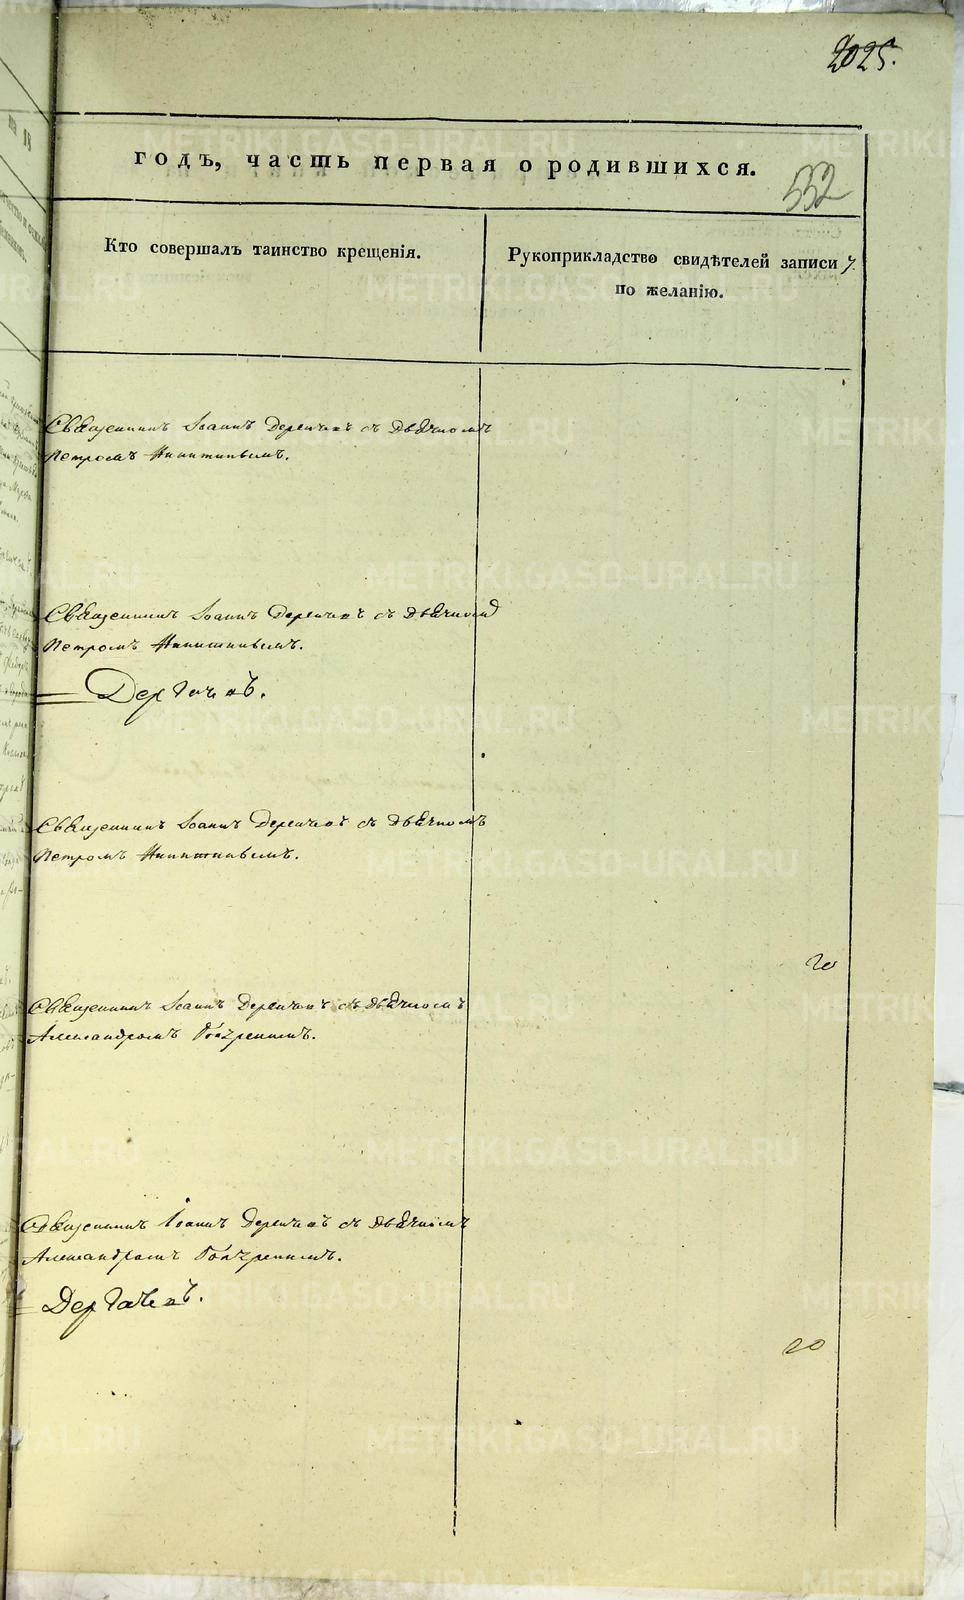 2025.
годъ, часть первая о родившихся.
552
Кто совершалъ таинство крещенія.
Рукоприкладство свидѣтелей записи
по желанію.
Священникъ Іоаннъ Дергачевъ съ дьячкомъ
Петромъ Никитинымъ.
Священникъ Іоаннъ Дергачевъ съ дьячкомъ
Петромъ Никитинымъ.
Дергачевъ.
Священникъ Іоаннъ Дергачевъ съ дьячкомъ
Петромъ Никитинымъ.
20
Священникъ Іоаннъ Дергачевъ съ дьячкомъ
Александромъ
Священникъ Іоаннъ Дергачевъ съ дьячкомъ
Александромъ
Дергачевъ.
20
METRIKI.GASO-URAL.RU